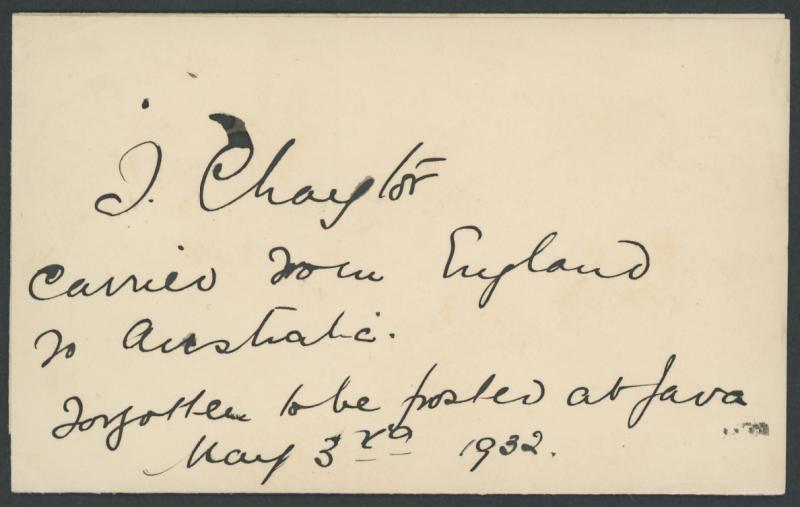 J. Chaytor
Carried from England
to Australia.
Forgotten to be posted at Java
May 3rd 1932.